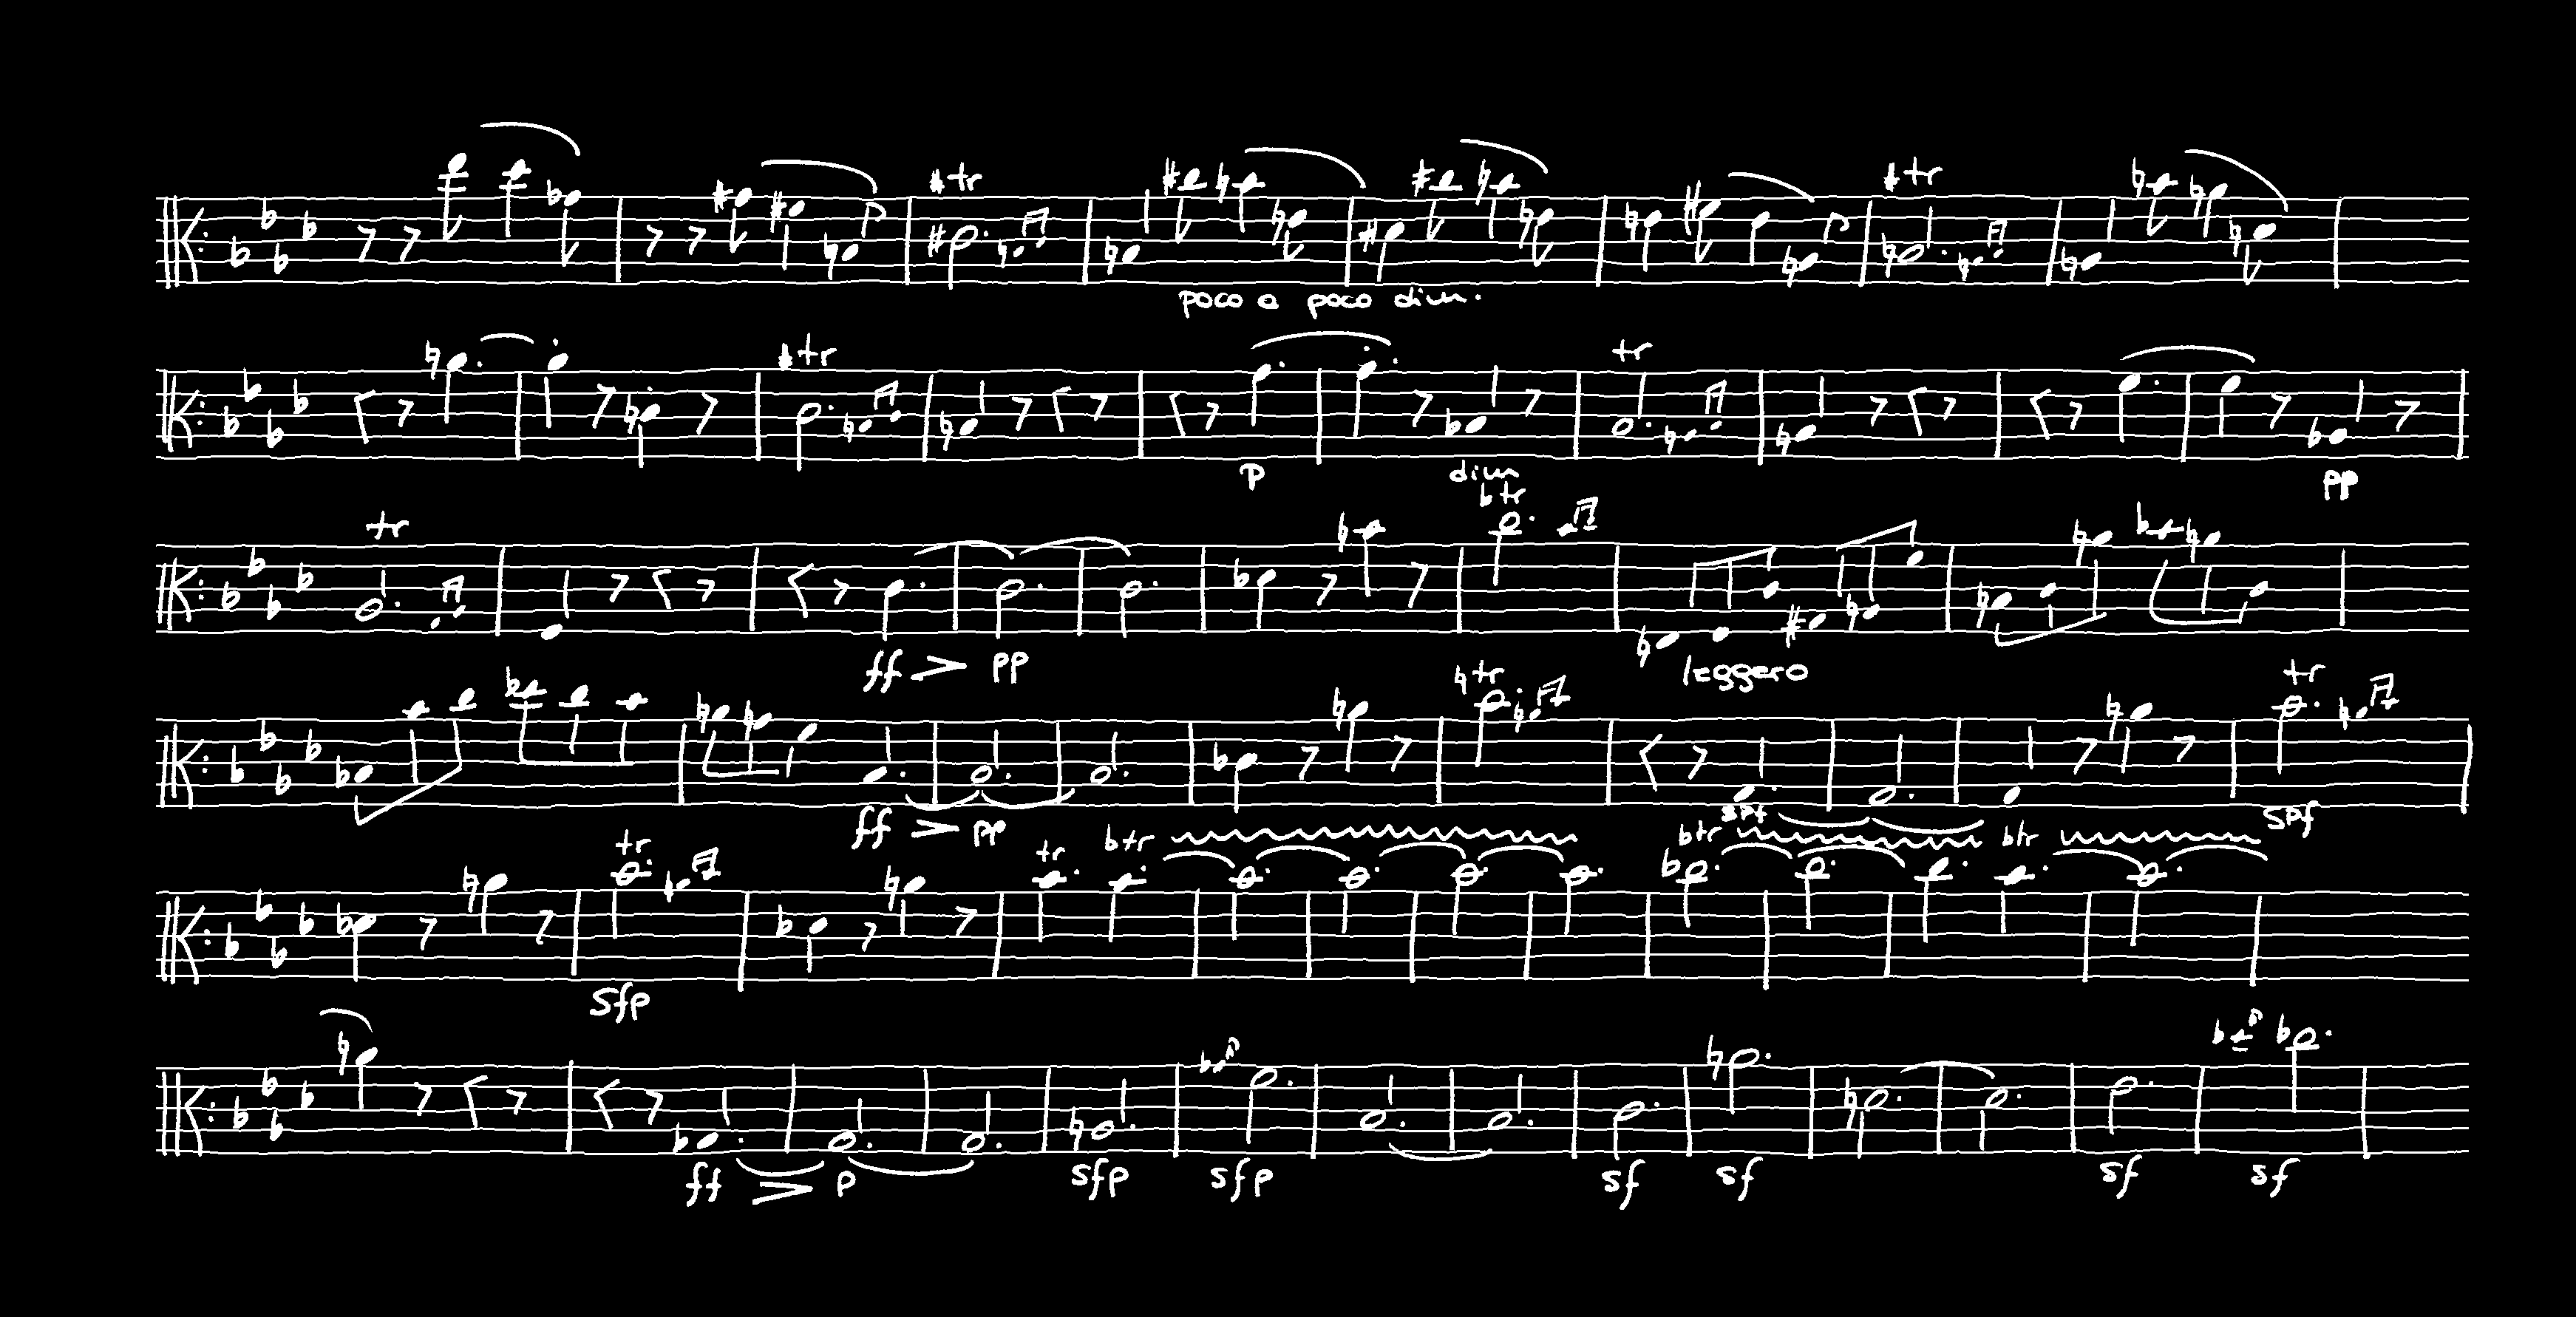 tr tr
poco a poco dim.
tr tr
p dim pp
tr tr
ff > pp leggero
tr tr
ff > pp spf spf
tr tr btr btr btr
sfp
ff > p sfp sfp sf sf sf sf